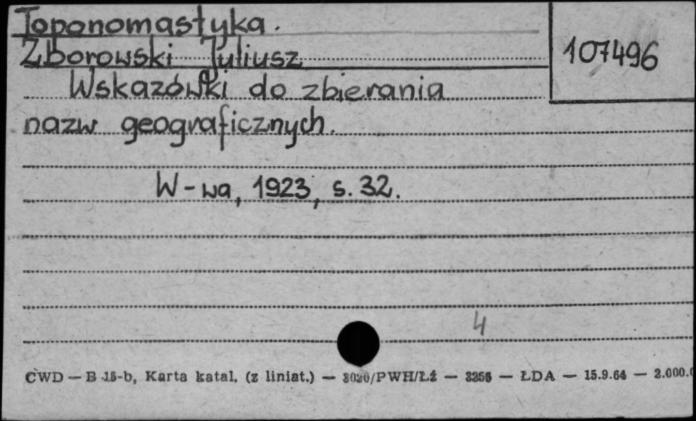 Toponomastyka.
Zborowski Juliusz
107496
Wskazówki do zbierania
nazw geograficznych.
W-wa, 1923, s. 32.
4
CWD — B 15-b, Karta katal. (z liniat.) — 3020/PWH/Łź — 3256 — ŁDA — 15.9.64 — 2.000.0